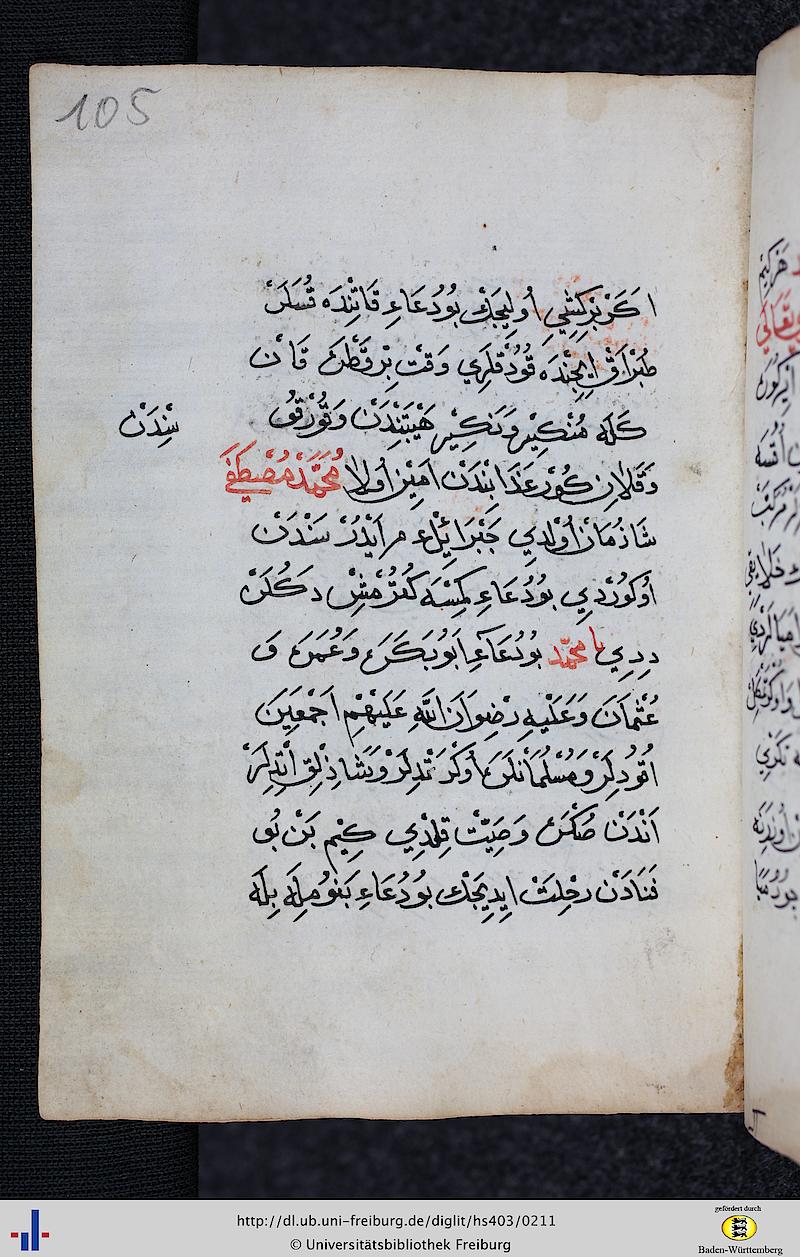 105
اكَرْ بِرْ كِشِي اُولِيجَكْ بُودُعَاءِ قَاتِنْدَه قُسَلَرْ
طُبْرَاقْ اِيچِنْدَه قُودُقْلَرِي وَقتْ بِرْ قَطْرَه قَانْ
كَلَه مُنْكِيرْ وَنَكِيرْ هَيْبَتِنْدَنْ وَقُورْقُو سِنْدَنْ
دَقَلَانِ كُورْ عَذَابِنْدَنْ اَمِينْ اُولَا مُحَمَّدْ مُصْطَفَى
شَاذُمَانْ اُولْدِي جَبْرَائِلْ ع م اَيْدُرْ سَنْدَنْ
اُوكُورْدِي بُودُعَاءِ كِمْسَه كَتُرْمُشْ دَكُلَنْ
دِدِي يا محمّد بُودُعَاءِ اَبُوبَكَرْ وَعُمَرْ وَ
عُثْمَانَ وَعَلَيْهِ رِضْوَانَ اللّٰهِ عَلَيْهِمْ اَجْمَعِينَ
اُقُودِلَرْ وَمُسْلُمَانْلَرَه اُوكْرَتْدِلَرْ وَشَاذِلِقْ اَتْدِلَرْ
اَنْدَنْ صُكْرَه وَصِيَّتْ قِلْدِي كِيمْ بَنْ بُو
فَنَادَنْ رِحْلِتْ اِيدِيجَكْ بُودُعَاءِ بَنُومِلَه بِلَه
http://dl.ub.uni-freiburg.de/diglit/hs403/0211
© Universitätsbibliothek Freiburg
gefördert durch
Baden-Württemberg